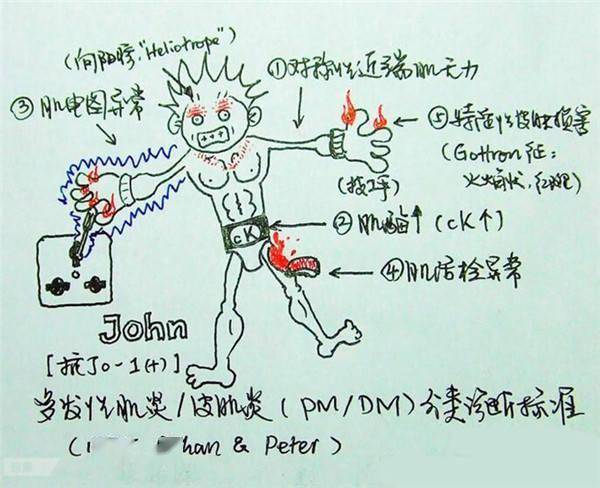 (向阳疹"Heliotrope")
①对称性近端肌无力
③肌电图异常
⑤特征性皮肤损害
(Gottron征:
火焰状,红斑)
(技工手)
②肌酶↑(CK↑)
CK
④肌活检异常
John
[抗Jo-1(+)]
多发性肌炎/皮肌炎(PM/DM)分类诊断标准
(han & Peter)